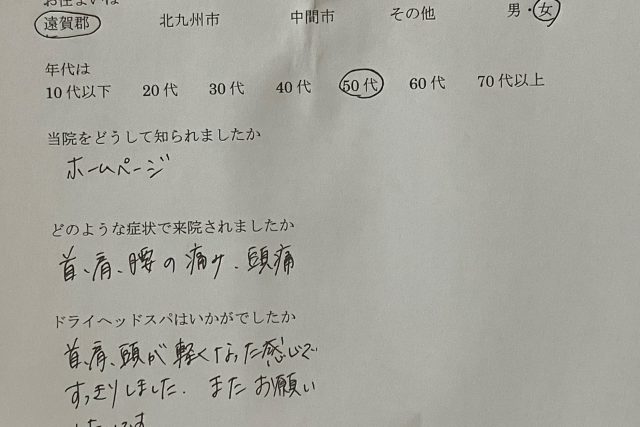 お住まいは
遠賀郡 北九州市 中間市 その他 男・女
年代は
10代以下 20代 30代 40代 50代 60代 70代以上
当院をどうして知られましたか
ホームページ
どのような症状で来院されましたか
首、肩、腰の痛み、頭痛
ドライヘッドスパはいかがでしたか
首、肩、頭が軽くなった感じで
すっきりしました。またお願い
したいです